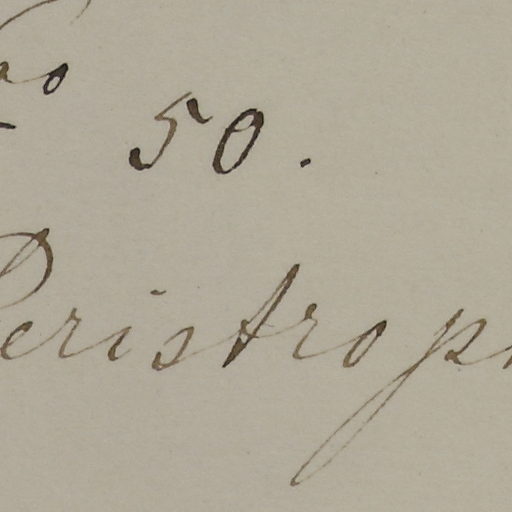 No 50.
Peristrop